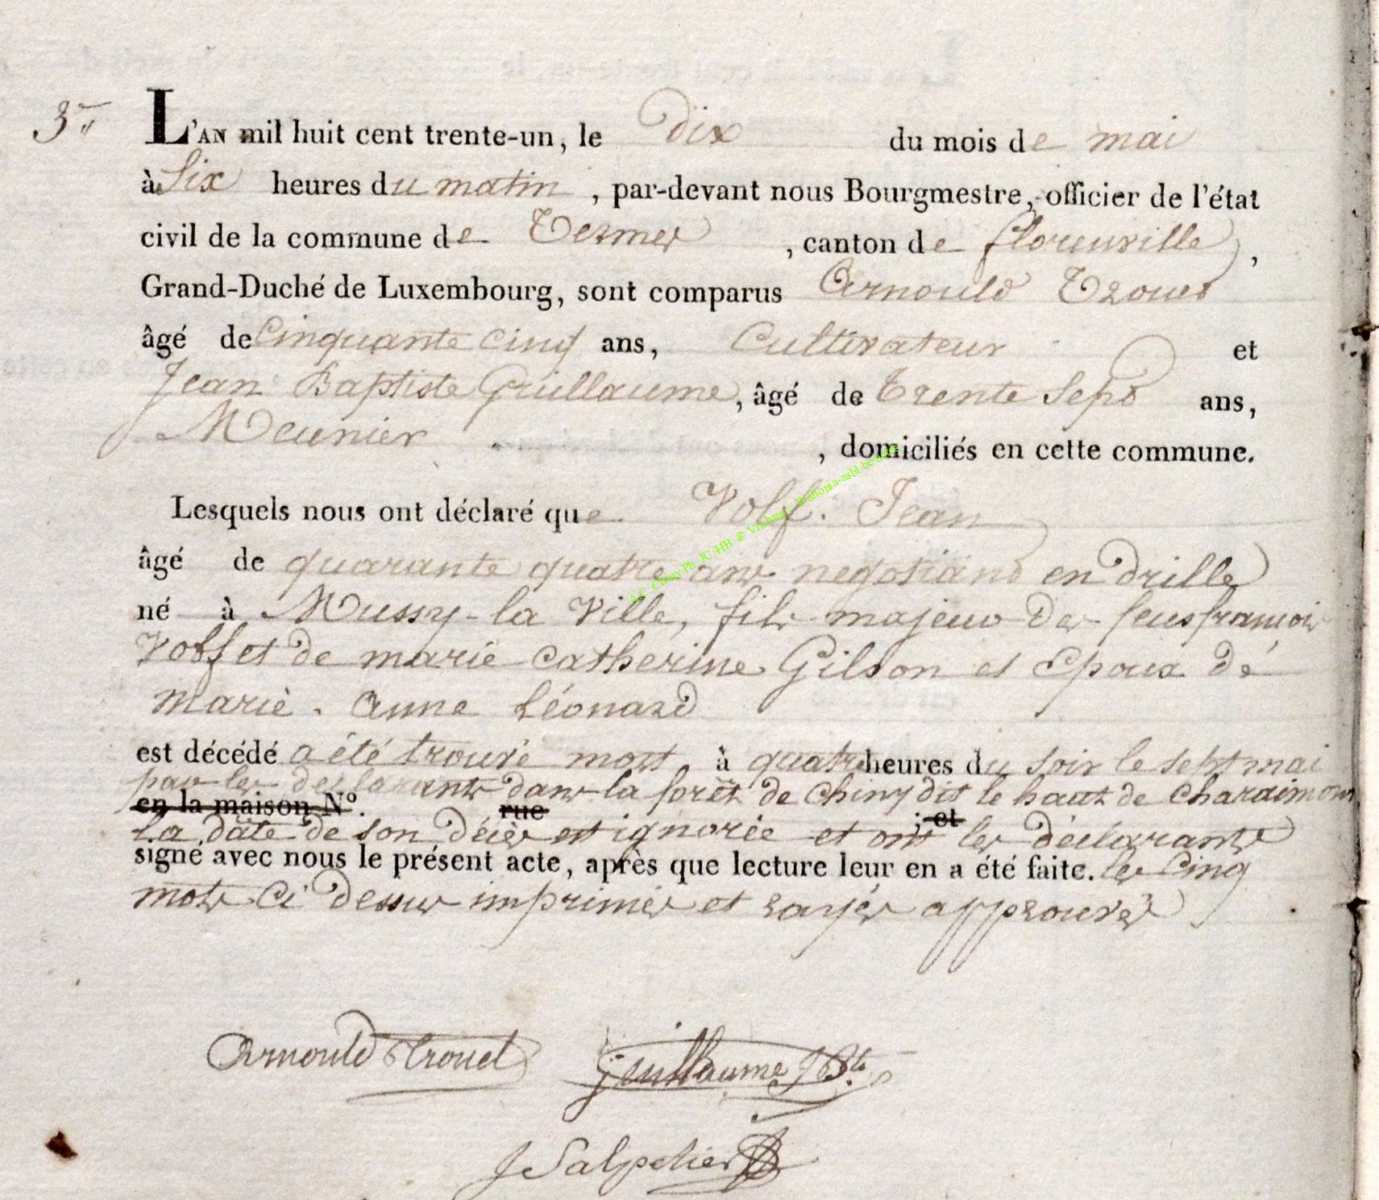 3
L'AN mil huit cent trente-un, le dix du mois de mai
à Six heures du matin, par-devant nous Bourgmestre, officier de l'état
civil de la commune de Termes, canton de florenville,
Grand-Duché de Luxembourg, sont comparus Arnould Trouet
âgé de Cinquante cinq ans, Cultivateur et
Jean Baptiste Guillaume, âgé de Trente Sept ans,
Meunier, domiciliés en cette commune.
Lesquels nous ont déclaré que Volf. Jean
âgé de quarante quatre ans negotiant en drille
né à Mussy-la Ville, fils majeur des feus francois
Volf et de marie catherine Gilson et Epoux dé
marie. Anne Léonard
est décédé a été trouvé mort à quatre heures du soir le sept mai
par les déclarants dans la forêt de Chiny dit le haut de Charaimont
en la maison N°. rue ; et
La date de son décès est ignorée et ont les déclarants
signé avec nous le présent acte, après que lecture leur en a été faite. les Cinq
mots Ci dessus imprimés et rayés approuvés
Arnould Trouet Guillaume J Bte
J Salpetier